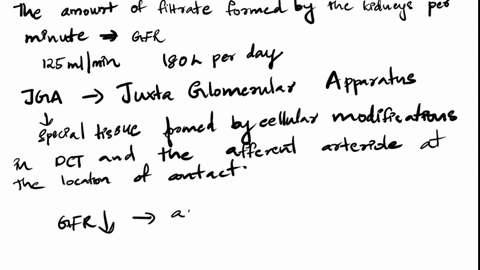 The amount of filtrate formed by the kidneys per
minute → GFR
125 ml/min 180L per day
JGA → Juxta Glomerular Apparatus
↓ Special tissue formed by cellular modifications
in DCT and the afferent arteriole at
the location of contact.
GFR ↓ → a